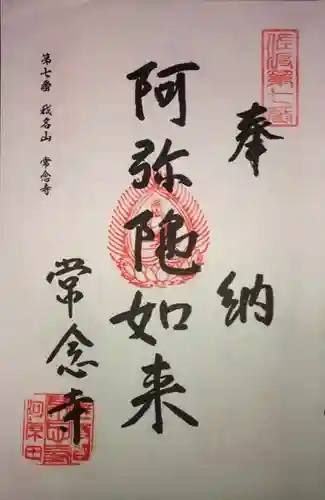 佐渡第七番
奉納
阿弥陀如来
常念寺
第七番 我名山 常念寺
河原田